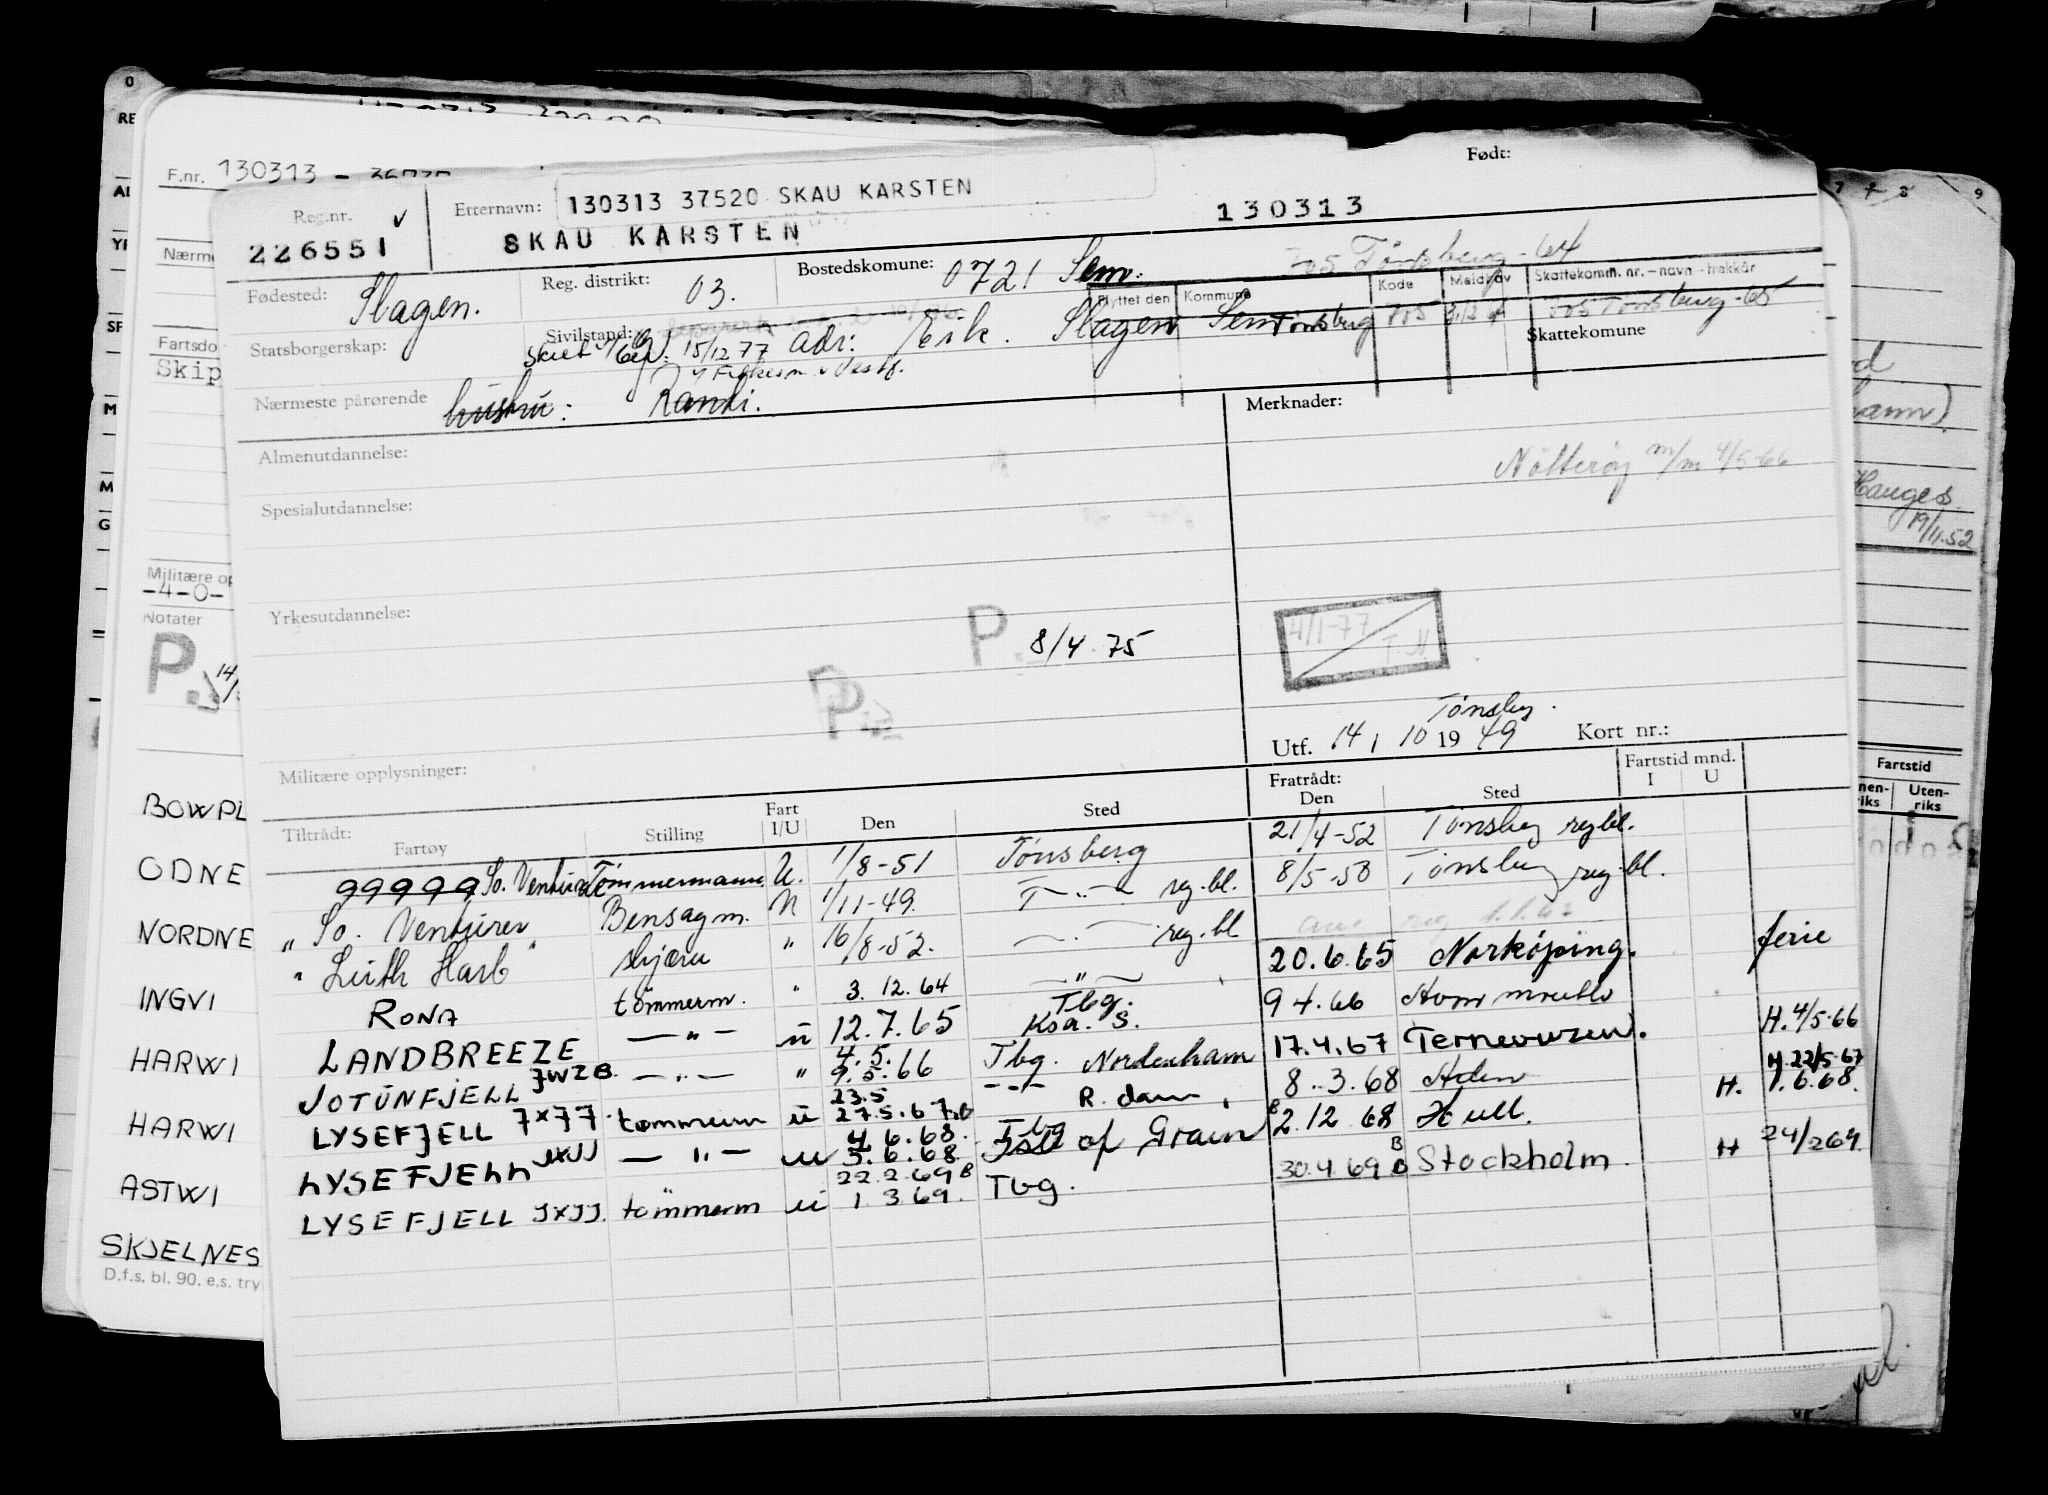 F.nr. 130313 -
Reg.nr.
226551
Etternavn: 130313 37520 SKAU KARSTEN
SKAU KARSTEN
Født:
130313
Fødested: Slagen.
Reg. distrikt: 03.
Bostedskomune: 0721 Sem.
Tønsberg - 64
Flyttet den Kommune Kode Skattekomm. nr. - navn - trekkår
Statsborgerskap:
Sivilstand:
15/12 77 adr: Eik. Slagen Sem Tønsberg 705
705 Tønsberg - 65
Skattekomune
Nærmeste pårørende hustru: Randi.
Merknader:
Nøtterøy m/m 4/5-66
Almenutdannelse:
Spesialutdannelse:
Yrkesutdannelse:
P. 8/4. 75
4/1-77
T.H
Tønsberg.
Utf. 14 / 10 19 49 Kort nr.:
Militære opplysninger:
Tiltrådt:
Fartøy Stilling Fart I/U Den Sted
Fratrådt:
Den Sted
Fartstid mnd.
I U
99999 So. Venturer Tømmermann U. 1/8-51 Tønsberg 21/4-52 Tønsberg reg.bl.
" So. Venturer Bensagm. 1/11-49. T - " - reg.bl. 8/5-53 Tønsberg reg.bl.
" Leith Harb " skjæru " 16/8-52. - " - reg.bl
RONA tömmerm. " 3.12.64 - " - 20.6.65 Norköping. ferie
LANDBREEZE - " - ü 12.7.65 Tbg. Ksa. S. 9 4.66
H. 4/5-66
JOTÜNFJELL JWZB. - " - " 4.5. 9.5.66 Tbg. Nordenham 17.4.67 Terneuzen.
H. 22/5-67
LYSEFJELL tømmerm ü 23.5 27.5.67 - " - R. dam 8.3.68 Aden H. 1.6.68.
LYSEFJELL JXJJ - " - ü 4.6.68. 5.6.68 Tbg Isle of Grain 2.12 68 Hull.
H 24/2 69
LYSEFJELL JXJJ. tömmerm ü 22.2.69 B 1.3.69. Tbg. 30.4.69 B Stockholm.
Nærme
Fartsdo
Skip
Militære op
-4-0-
Notater
P.
14/
BOWPL
ODNE
NORDNE
INGVI
HARWI
HARWI
ASTWI
SKJELNES
D.f.s. bl. 90. e.s. try
7 8 9
Hauges
19/11.52
Fartstid
Innen-
riks
Uten-
riks